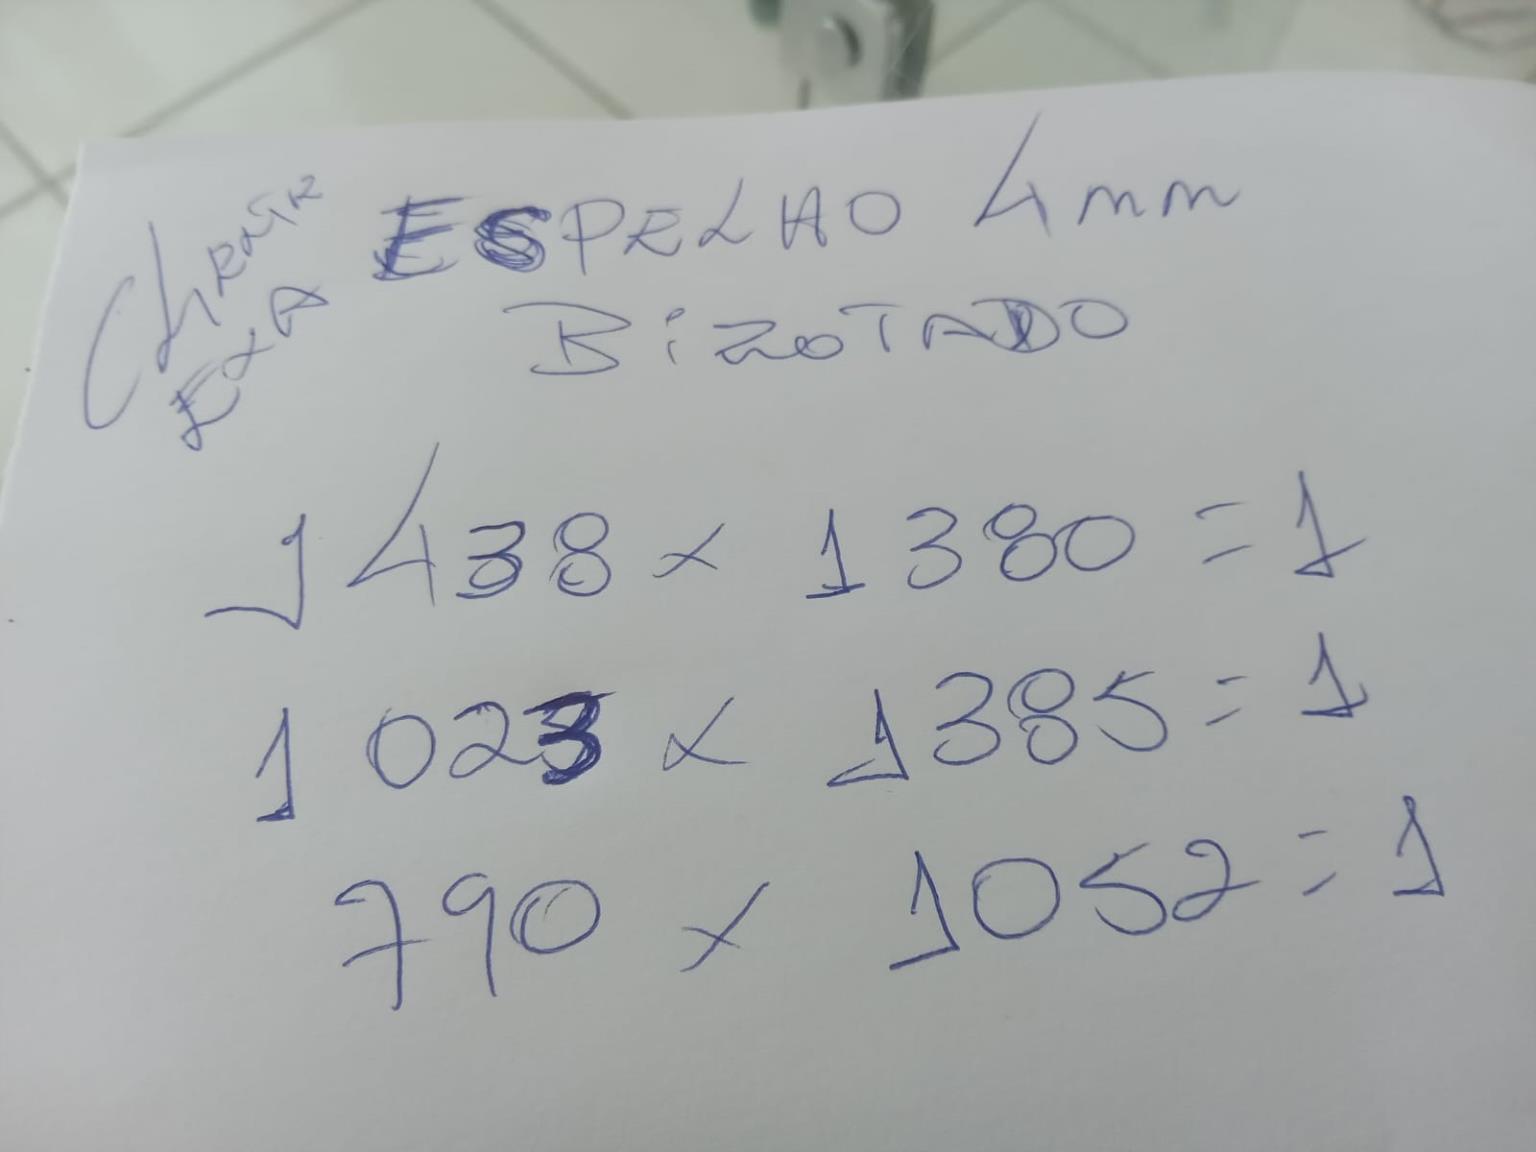 ESPELHO 4mm
BiZOTADO
1438 x 1380 = 1
1023 x 1385 = 1
790 x 1052 = 1